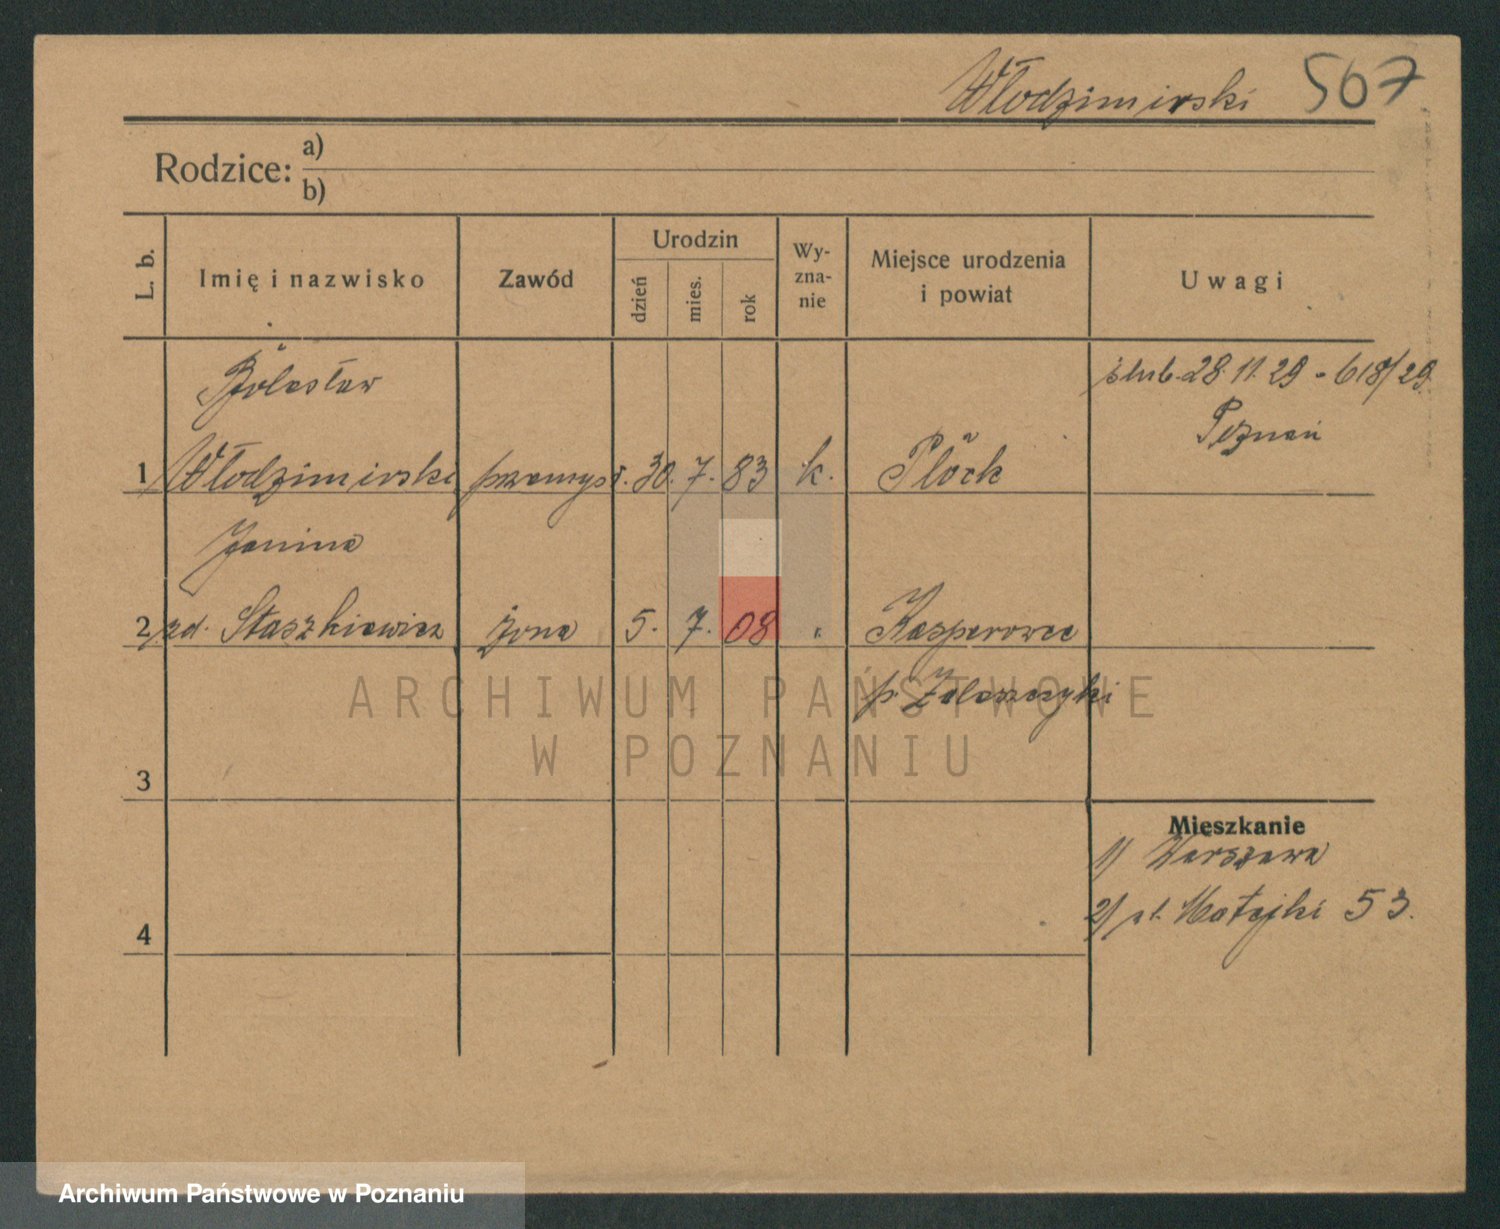 Włodzimirski 567
Rodzice: a)
b)
L. b.
Imię i nazwisko
Zawód
Urodzin
dzień
mies.
rok
Wy-
zna-
nie
Miejsce urodzenia
i powiat
Uwagi
Bolesław
ślub 28.11.29 - 618/29
Poznań
1 Włodzimirski przemysł. 30. 7. 83 k. Płock
Janina
2 zd. Staszkiewicz żona 5. 7. 08 " Kasperowce
p. Zaleszczyki
ARCHIWUM PAŃSTWOWE
W POZNANIU
3
Mieszkanie
1) Warszawa
2) ul. Matejki 53.
4
Archiwum Państwowe w Poznaniu